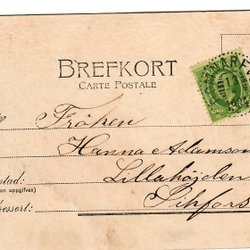 BREFKORT
CARTE POSTALE
Fröken
Hanna Adamson
Lillahöjden
stad:
an uppgifvas)
ressort: